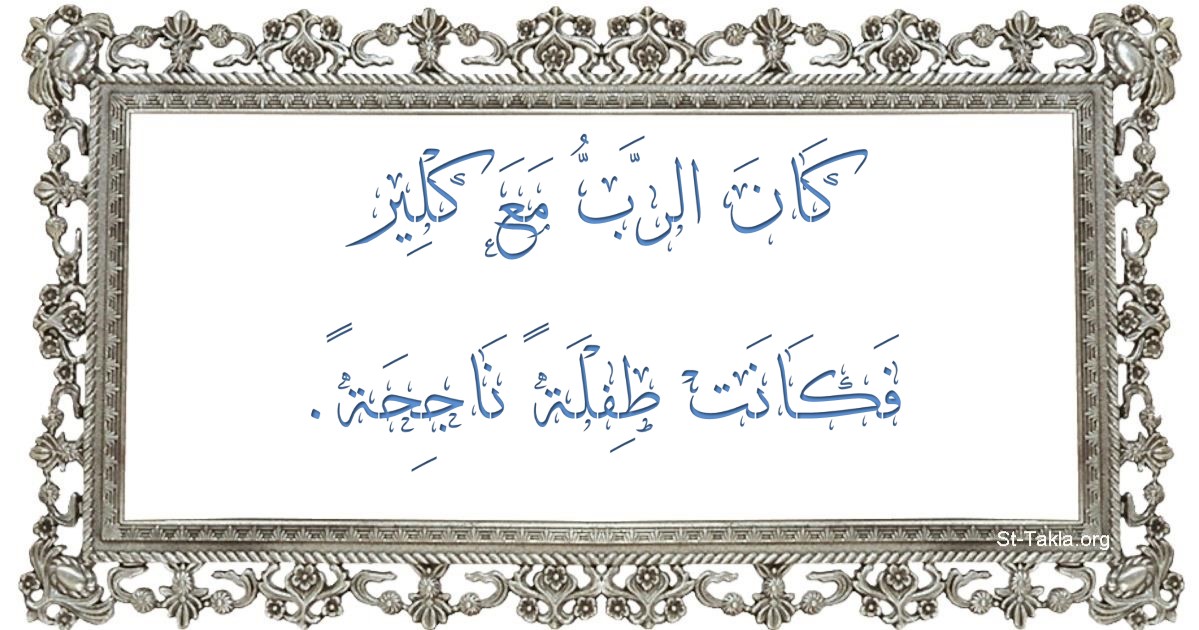 كَانَ الرَّبُّ مَعَ كْلِير
فَكَانَتْ طِفْلَةً نَاجِحَةً.
St-Takla.org